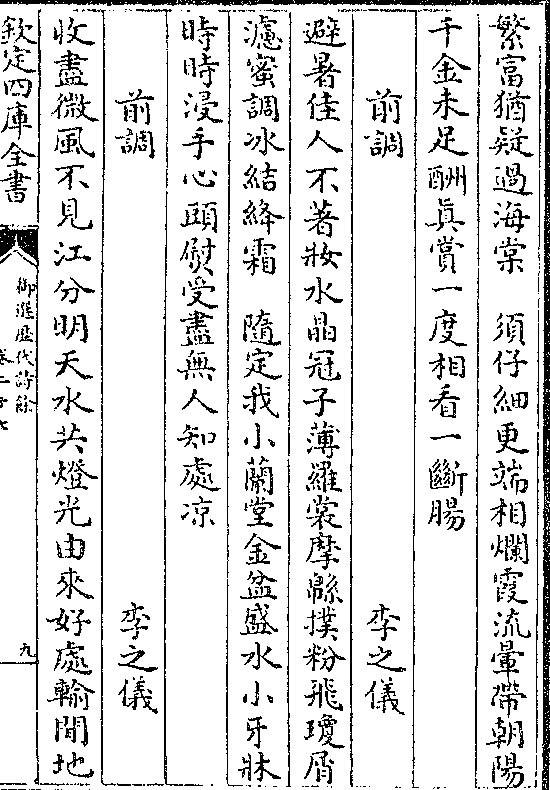 繁富猶疑過海棠　須仔細更端相爛霞流暈帶朝陽
千金未足酬眞賞一度相看一斷腸
前調　李之儀
避暑佳人不著妝水晶冠子薄羅裳摩緜撲粉飛瓊屑
濾蜜調冰結絳霜　隨定我小蘭堂金盆盛水小牙牀
時時浸手心頭熨受盡無人知處凉
前調　李之儀
收盡微風不見江分明天水共燈光由來好處輸閒地
欽定四庫全書
御選歷代詩餘
九